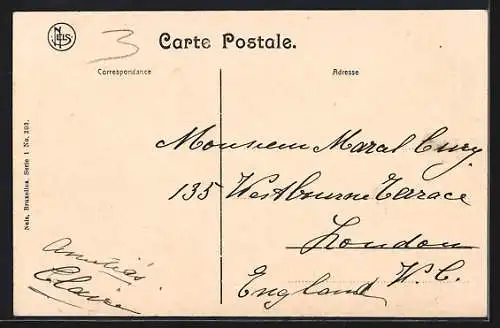 NELS
3
Carte Postale.
Correspondance
Adresse
Monsieur Marcel Cury
135 Westbourne Terrace
London
W. C.
England
Amitiés
Claire
Nels, Bruxelles, Serie 1 No. 303.